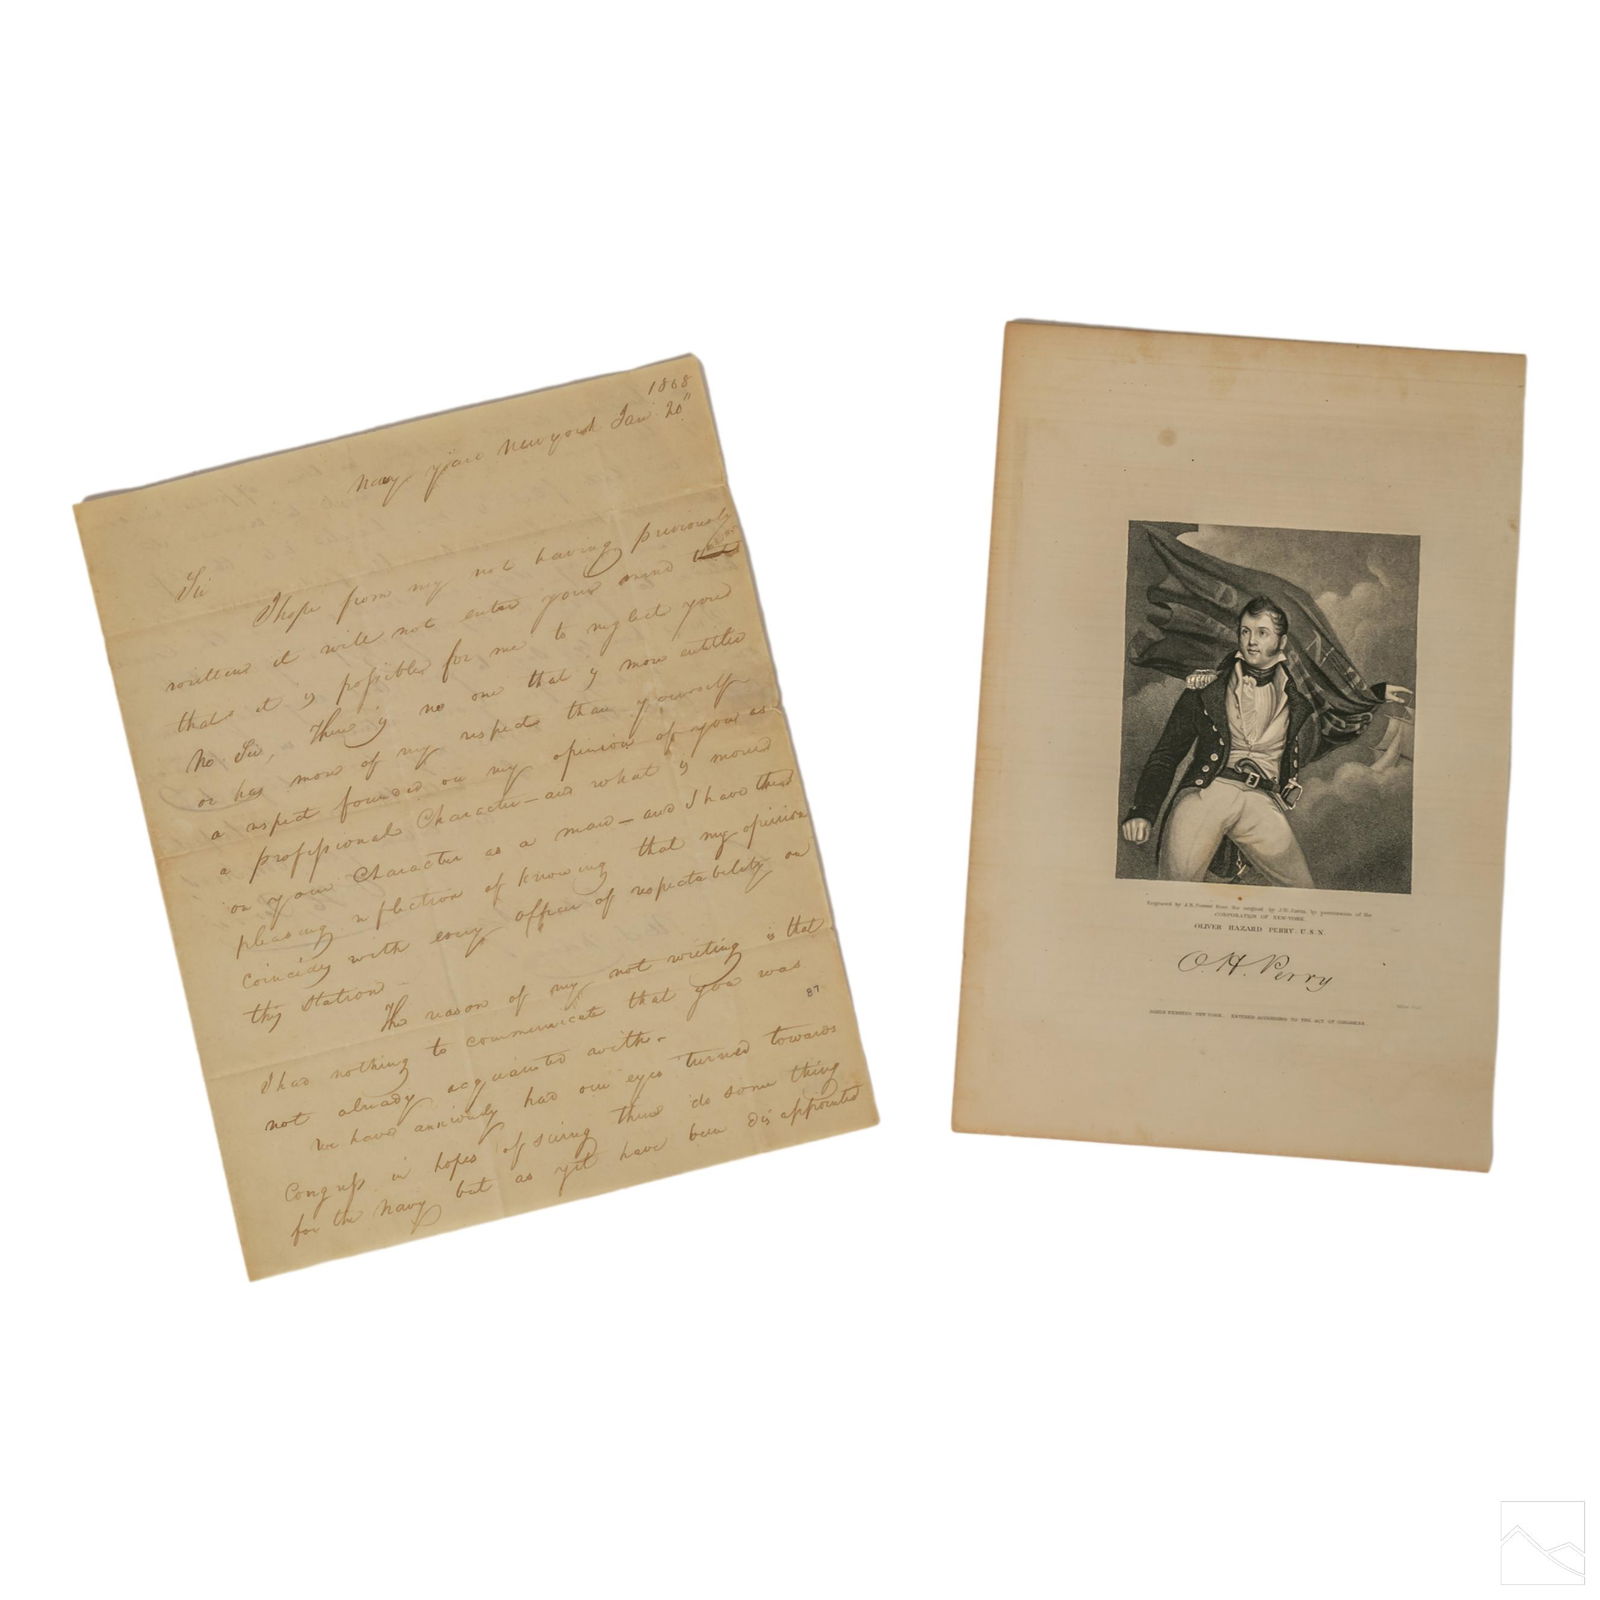 1808
Navy yard New york Jan 20"
Sir
I hope from my not having previously
written it will not enter your mind
that it is possible for me to neglect you
No Sir, There is no one that is more entitled
or has more of my respect than yourself
a respect founded on my opinion of your as
a professional Character — and what is more
on your Character as a man — and I have the
pleasing reflection of knowing that my opinion
coincides with every officer of respectability on
this station —
The reason of my not writing is that
I had nothing to communicate that you was
not already acquainted with —
We have anxiously had our eyes turned towards
Congress in hopes of seeing them do some thing
for the Navy but as yet have been disappointed
87
Engraved by J.B. Forrest from the original by J.W. Jarvis, by permission of the
CORPORATION OF NEW-YORK.
OLIVER HAZARD PERRY U.S.N.
O. H. Perry
PRINTED NEW YORK. ENTERED ACCORDING TO THE ACT OF CONGRESS